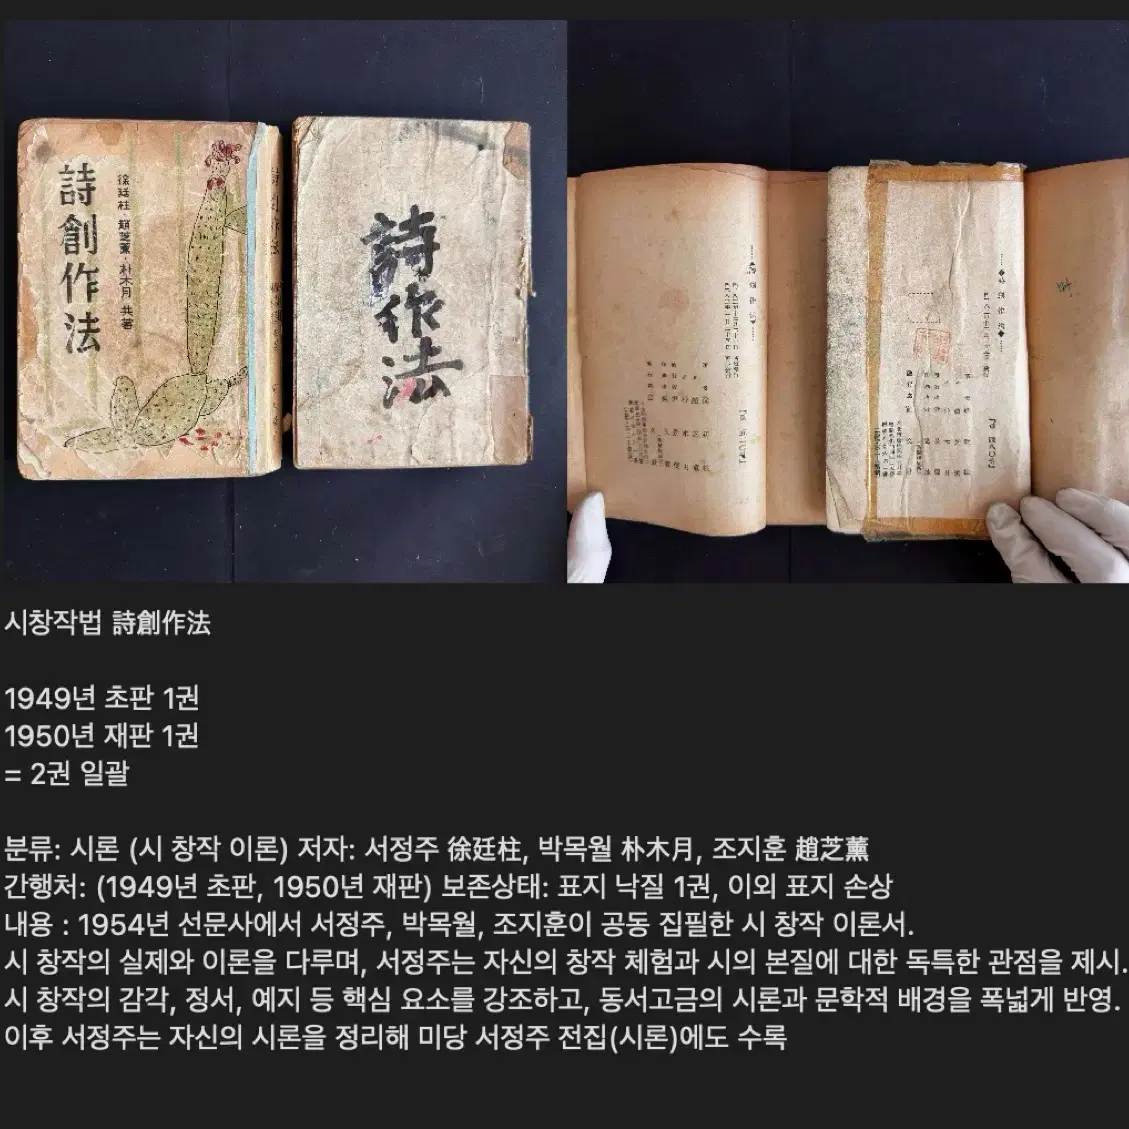 詩創作法
徐廷柱·趙芝薰·朴木月 共著
詩作法
시창작법 詩創作法
1949년 초판 1권
1950년 재판 1권
= 2권 일괄
분류: 시론 (시 창작 이론) 저자: 서정주 徐廷柱, 박목월 朴木月, 조지훈 趙芝薫
간행처: (1949년 초판, 1950년 재판) 보존상태: 표지 낙질 1권, 이외 표지 손상
내용 : 1954년 선문사에서 서정주, 박목월, 조지훈이 공동 집필한 시 창작 이론서.
시 창작의 실제와 이론을 다루며, 서정주는 자신의 창작 체험과 시의 본질에 대한 독특한 관점을 제시.
시 창작의 감각, 정서, 예지 등 핵심 요소를 강조하고, 동서고금의 시론과 문학적 배경을 폭넓게 반영.
이후 서정주는 자신의 시론을 정리해 미당 서정주 전집(시론)에도 수록